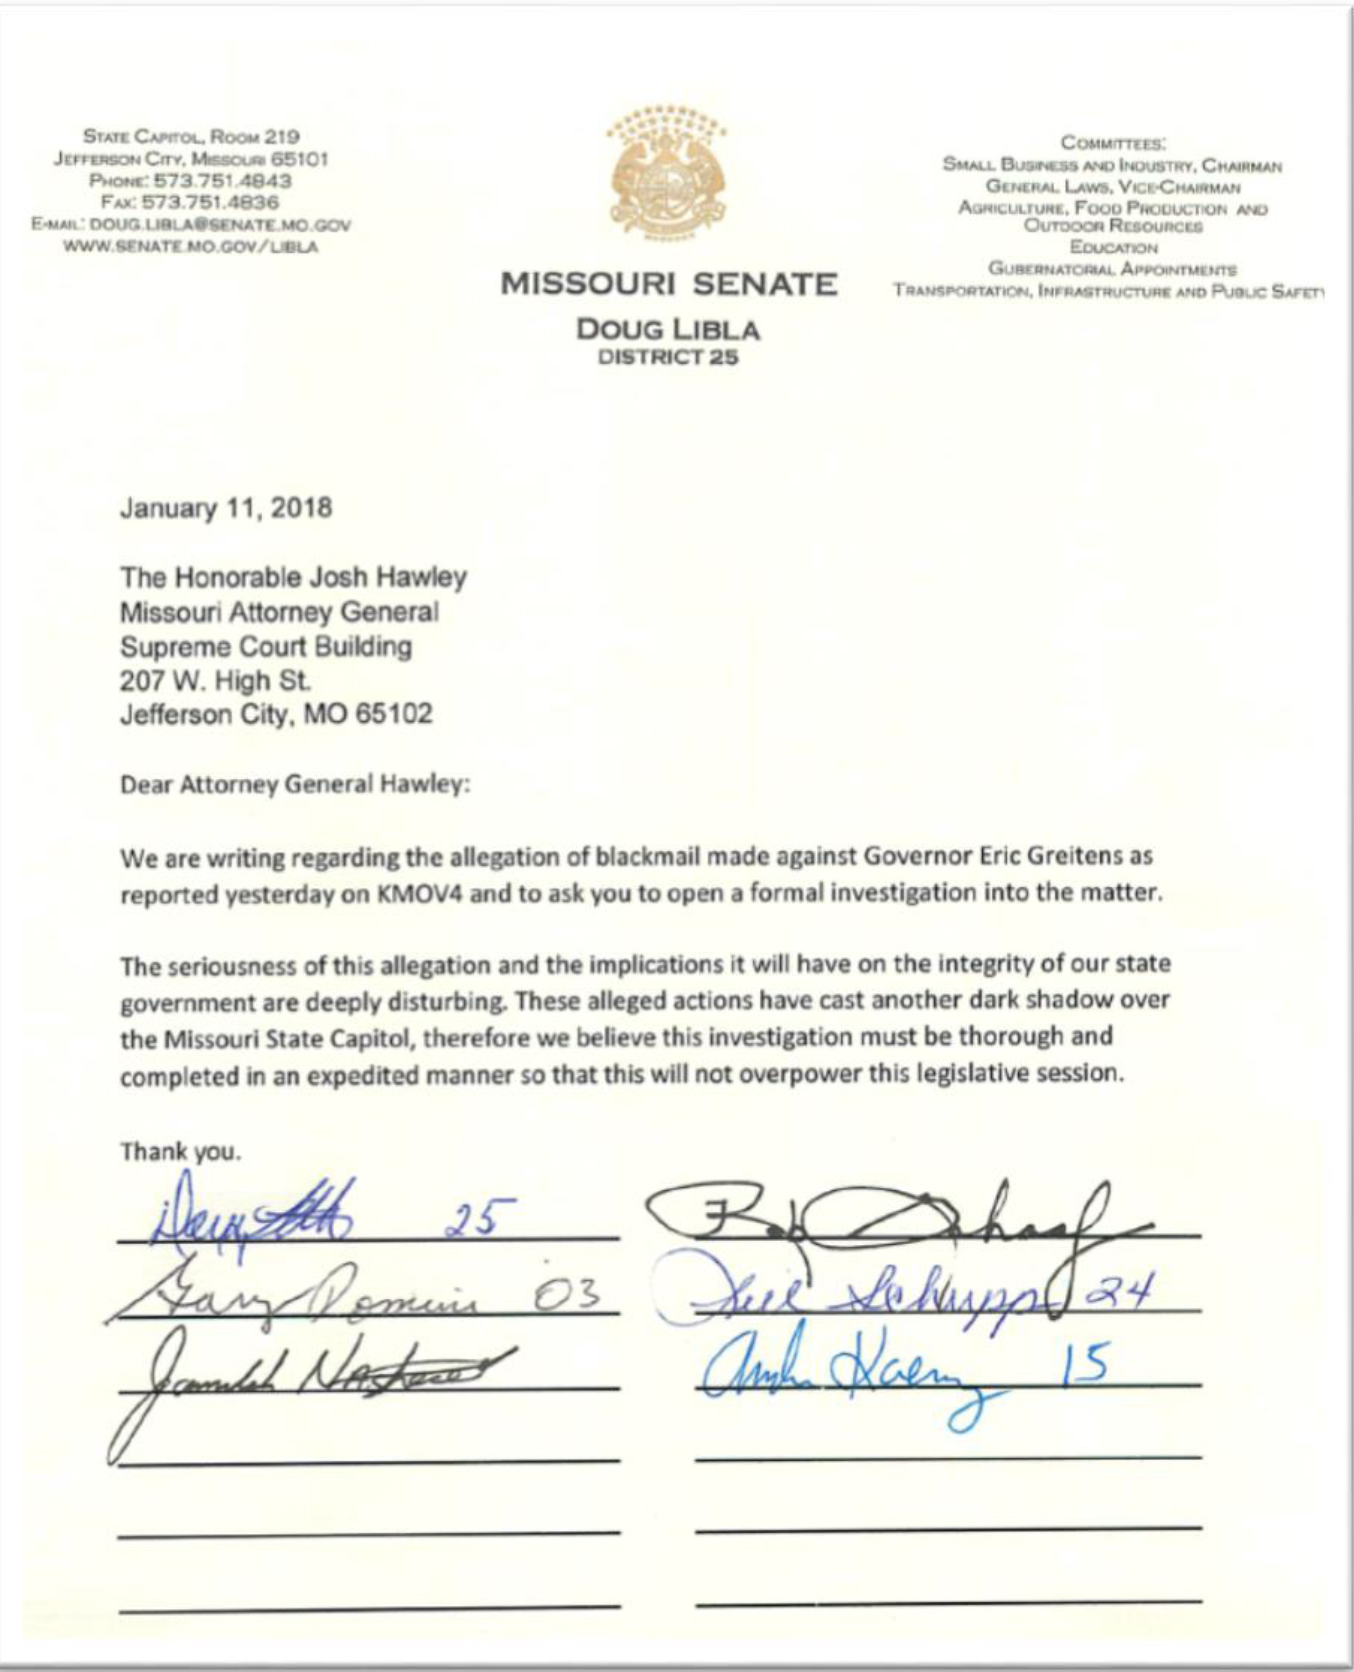 STATE CAPITOL, ROOM 219
JEFFERSON CITY, MISSOURI 65101
PHONE: 573.751.4843
FAX: 573.751.4836
E-MAIL: DOUG.LIBLA@SENATE.MO.GOV
WWW.SENATE.MO.GOV/LIBLA
MISSOURI SENATE
DOUG LIBLA
DISTRICT 25
COMMITTEES:
SMALL BUSINESS AND INDUSTRY, CHAIRMAN
GENERAL LAWS, VICE-CHAIRMAN
AGRICULTURE, FOOD PRODUCTION AND
OUTDOOR RESOURCES
EDUCATION
GUBERNATORIAL APPOINTMENTS
TRANSPORTATION, INFRASTRUCTURE AND PUBLIC SAFETY
January 11, 2018
The Honorable Josh Hawley
Missouri Attorney General
Supreme Court Building
207 W. High St.
Jefferson City, MO 65102
Dear Attorney General Hawley:
We are writing regarding the allegation of blackmail made against Governor Eric Greitens as
reported yesterday on KMOV4 and to ask you to open a formal investigation into the matter.
The seriousness of this allegation and the implications it will have on the integrity of our state
government are deeply disturbing. These alleged actions have cast another dark shadow over
the Missouri State Capitol, therefore we believe this investigation must be thorough and
completed in an expedited manner so that this will not overpower this legislative session.
Thank you.
25
Rob Schaaf
Gary Romine 03
Jill Schupp 24
Jamilah Nasheed
Koenig 15